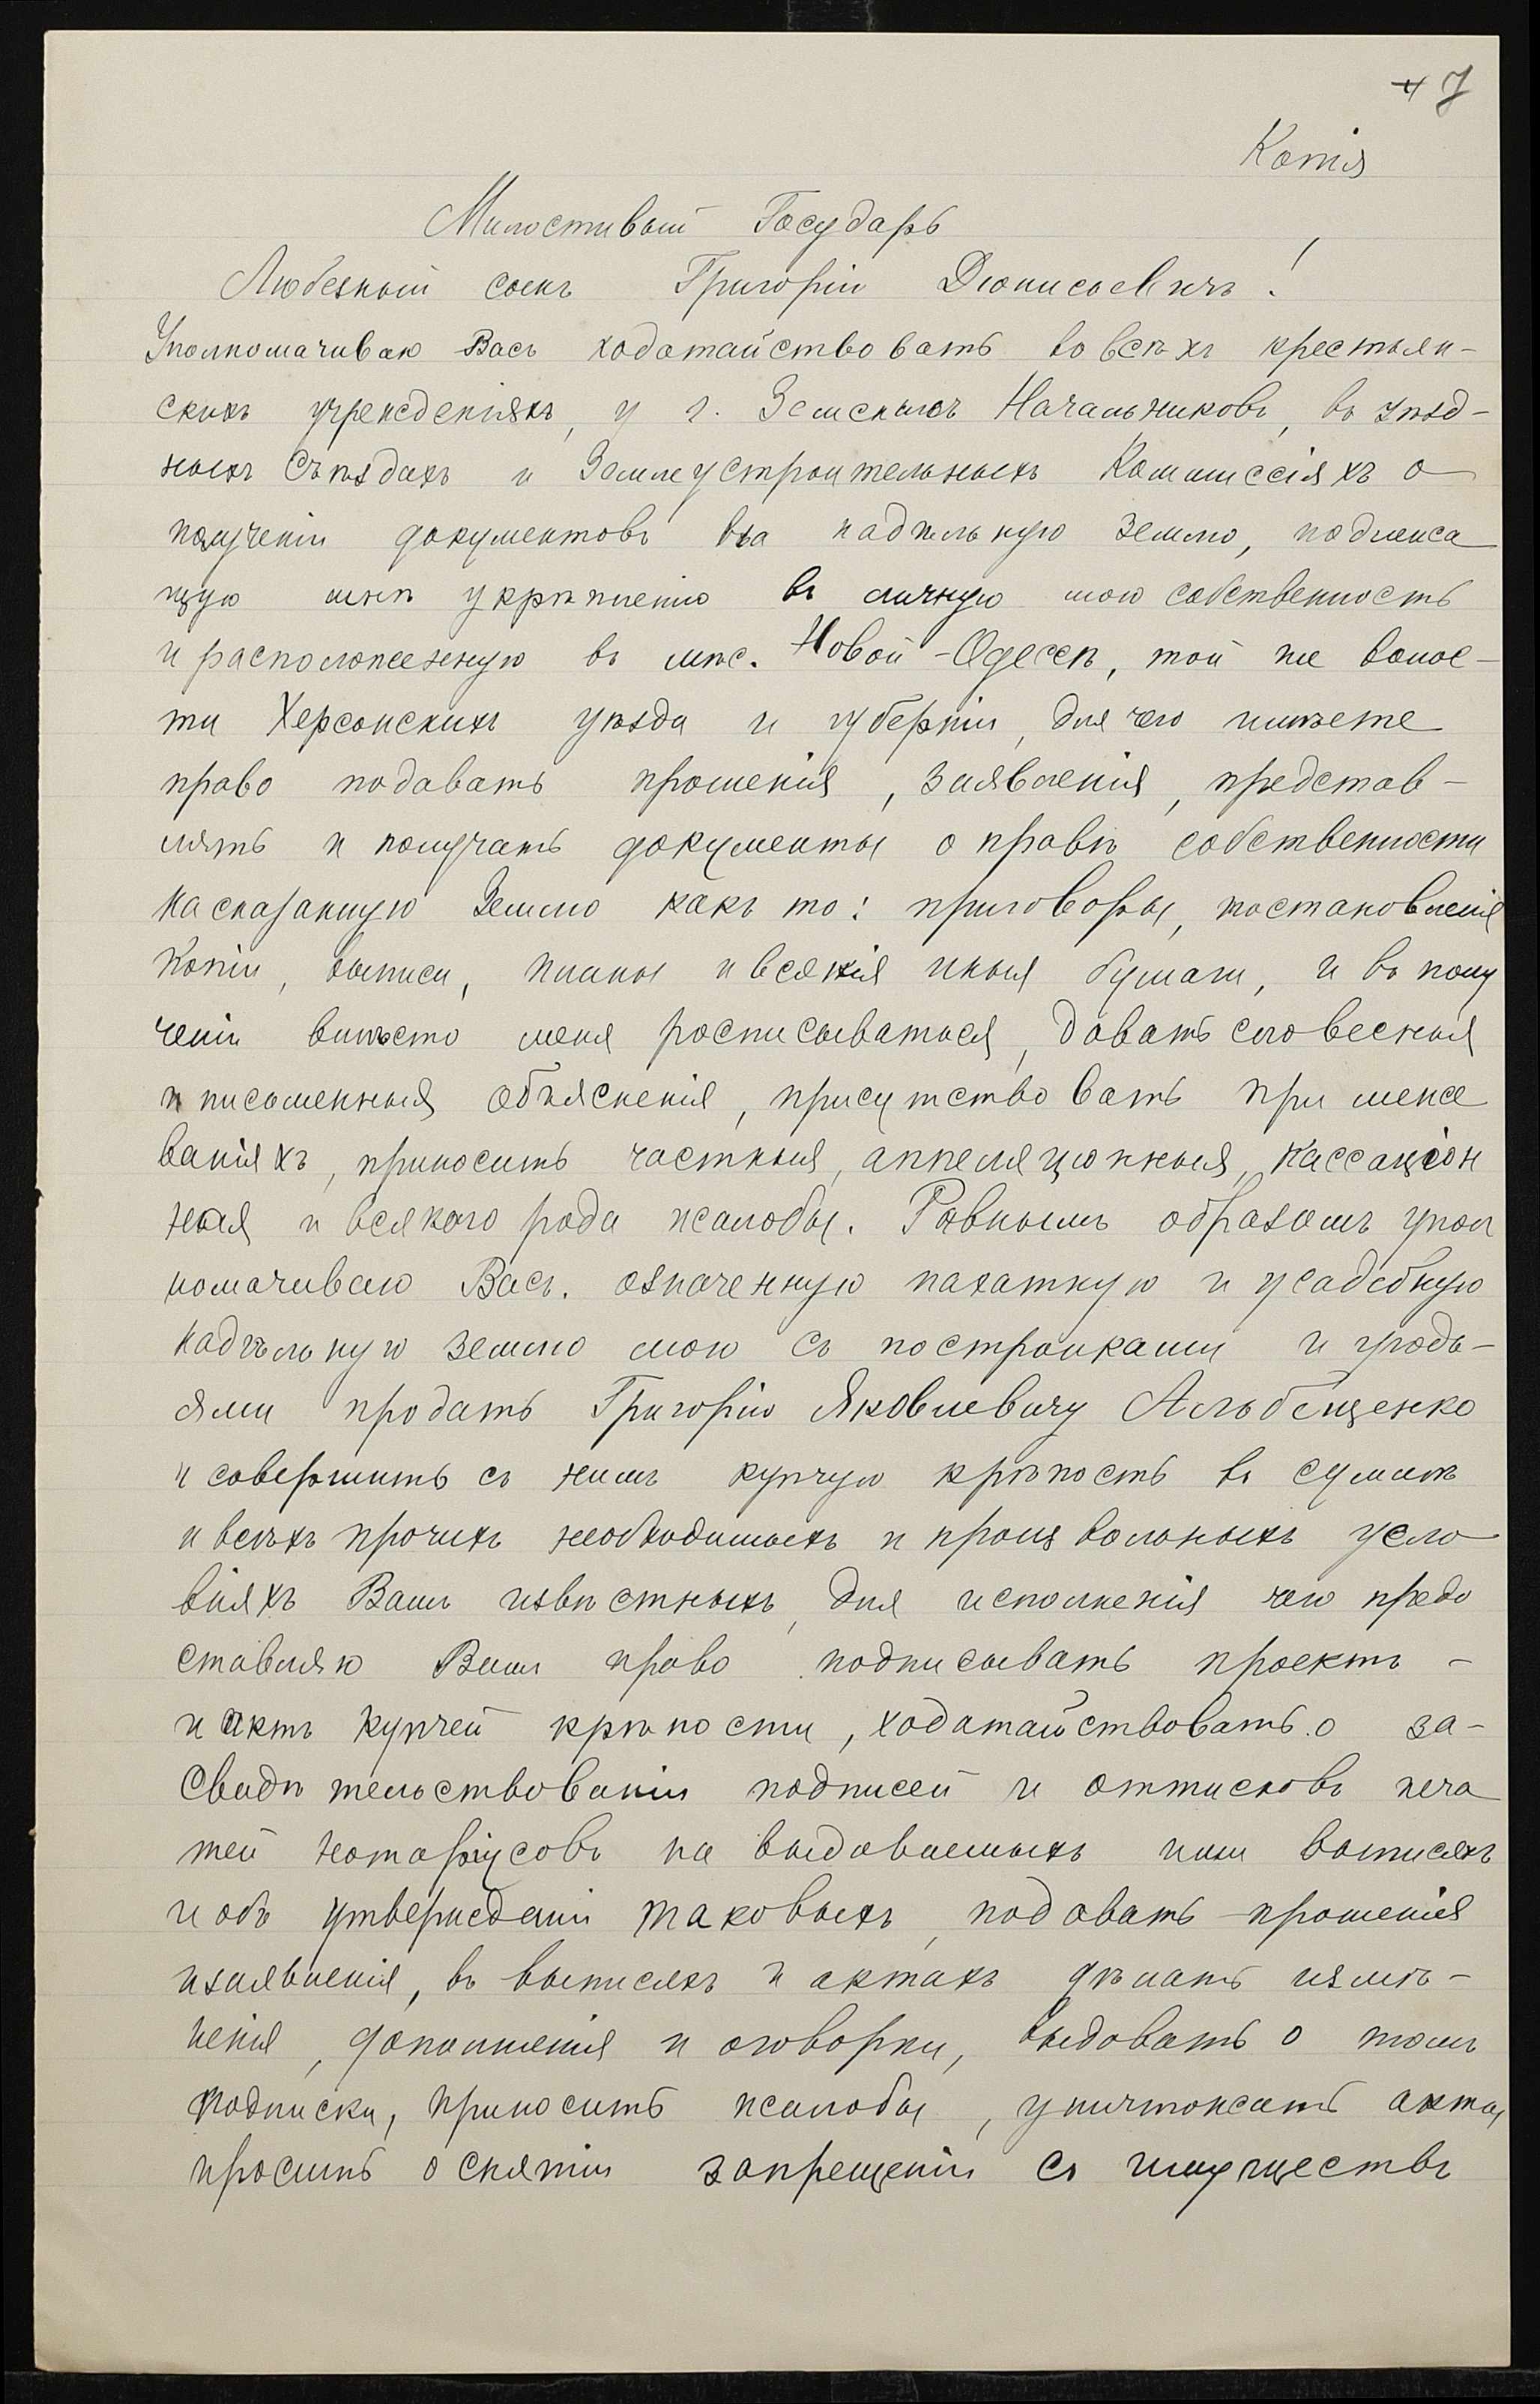 4 7
Копія
Милостивый Государь
Любезный сынъ Григорій Діонисьевичъ!
Уполномачиваю Васъ ходатайствовать во всѣхъ крестьян-
скихъ учрежденіяхъ, у г. Земскихъ Начальниковъ, въ уѣзд-
ныхъ Съѣздахъ и Землеустроительныхъ Коммиссіяхъ о
полученіи документовъ на надѣльную землю, подлежа
щую мнѣ укрѣпленію въ личную мою собственность
и расположенную въ мѣс. Новой-Одессѣ, той же волос-
ти Херсонскихъ уѣзда и губерніи, для чего имѣете
право подавать прошенія, заявленія, представ-
лять и получать документы о правѣ собственности
на сказанную землю какъ то: приговоры, постановленія
Копіи, выписи, планы и всякія иныя бумаги, и въ полу
ченіи вмѣсто меня росписываться, давать словесныя
и письменныя объясненія, присутствовать при меже
ваніяхъ, приносить частныя, аппеляціонныя, кассаціон
ныя и всякаго рода жалобы. Равнымъ образомъ упол
номачиваю Васъ. означенную пахатную и усадебную
надѣльную землю мою съ постройками и угодь-
ями продать Григорію Яковлевичу Альбещенко
и совершить съ нимъ купчую крѣпость въ суммѣ
и всѣхъ прочихъ необходимыхъ и произвольныхъ усло
віяхъ Вамъ извѣстныхъ, для исполненія чего предо
ставляю Вамъ право подписывать проектъ -
и актъ купчей крѣпости, ходатайствовать о за-
свидѣтельствованіи подписей и оттисковъ печа
тей нотаріусовъ на выдаваемыхъ ими выписяхъ
и объ утвержденіи таковыхъ, подавать прошенія
и заявленія, въ выписяхъ и актахъ дѣлать измѣ-
ненія, дополненія и оговорки, выдавать о томъ
подписки, приносить жалобы, уничтожать акты,
просить о снятіи запрещеній съ имуществъ